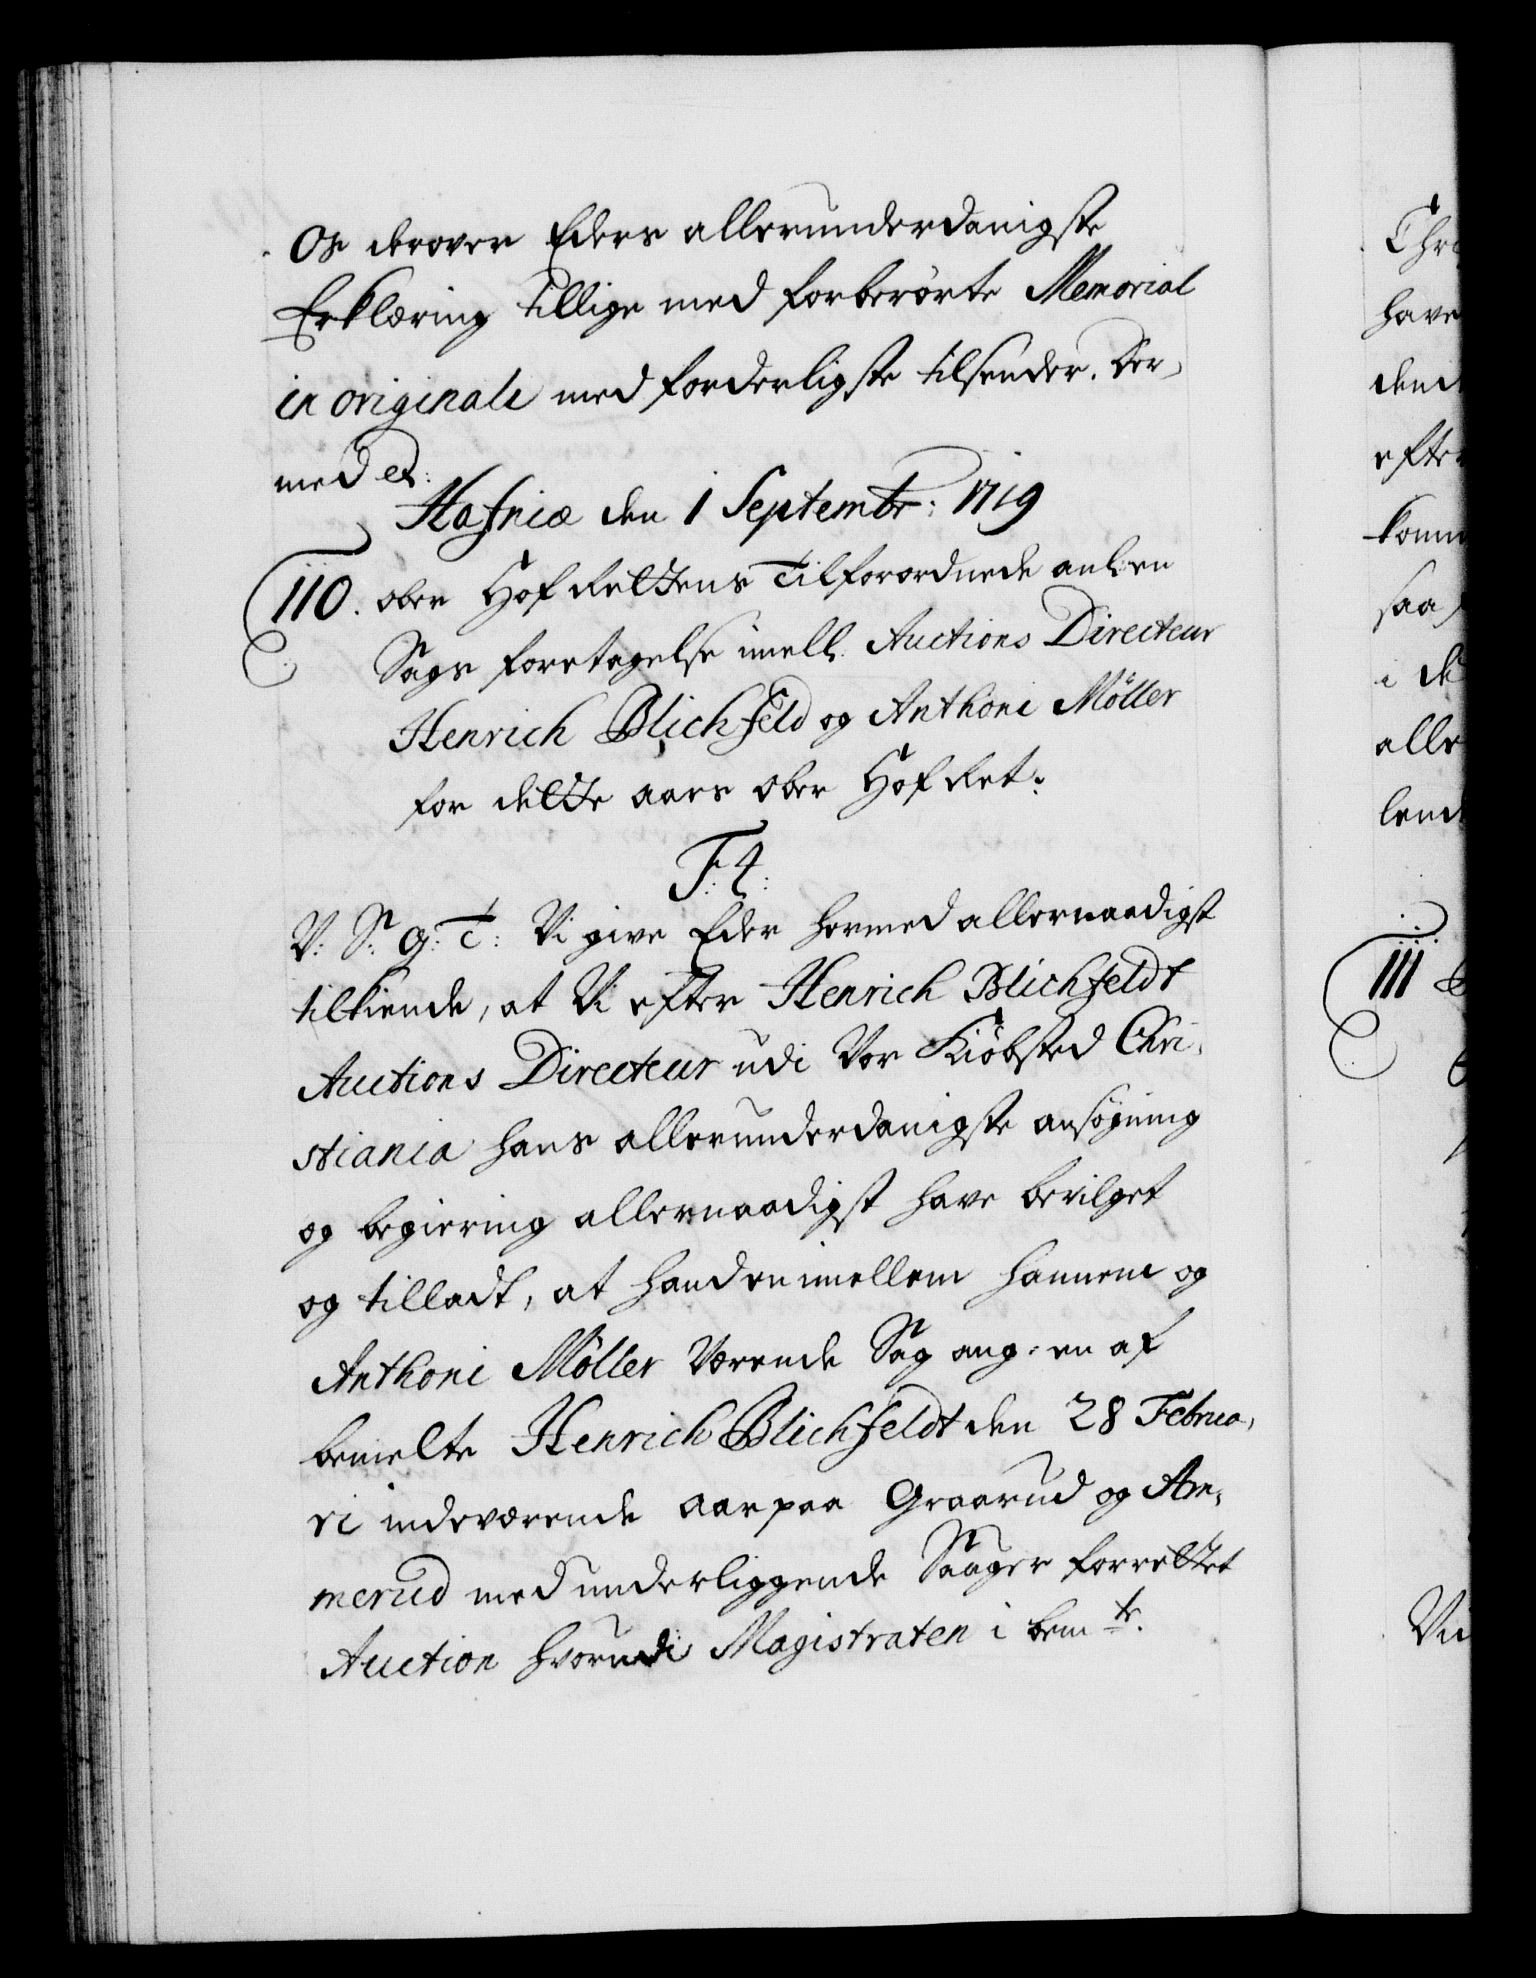 Os derover Eders allerunderdanigste
Erklæring tillige med forberørte Memorial
in originali med forderligste tilsender. Der-
med et:
Hafniæ den 1 Septembr: 1719
110. Ober Hof Rettens Tilforordnede anl: en
Sags foretagelse imell. Auctions Directeur
Henrich Blichfeld og Anthoni Möller
for dette aars Ober Hof Ret:
F: 4:
V: S: G: T: Vi give Eder hermed allernaadigst
tilkiende, at Vi efter Henrich Blichfeldt
Auctions Directeur udi Vor Kiøbsted Chri-
stiania hans allerunderdanigste ansøgning
og begiering allernaadigst have bevilget
og tilladt, at hand en imellem hannem og
Anthoni Möller Værende Sag ang: en af
bemelte Henrich Blichfeldt den 28 Februa-
ri indeværende aar paa Graarud og Am-
merud med underliggende Sauger forrettet
Auction hvorudi Magistraten i bem.te
Chr
have
dend
efter
komm
saa
i de
alle
lend
111
Vu